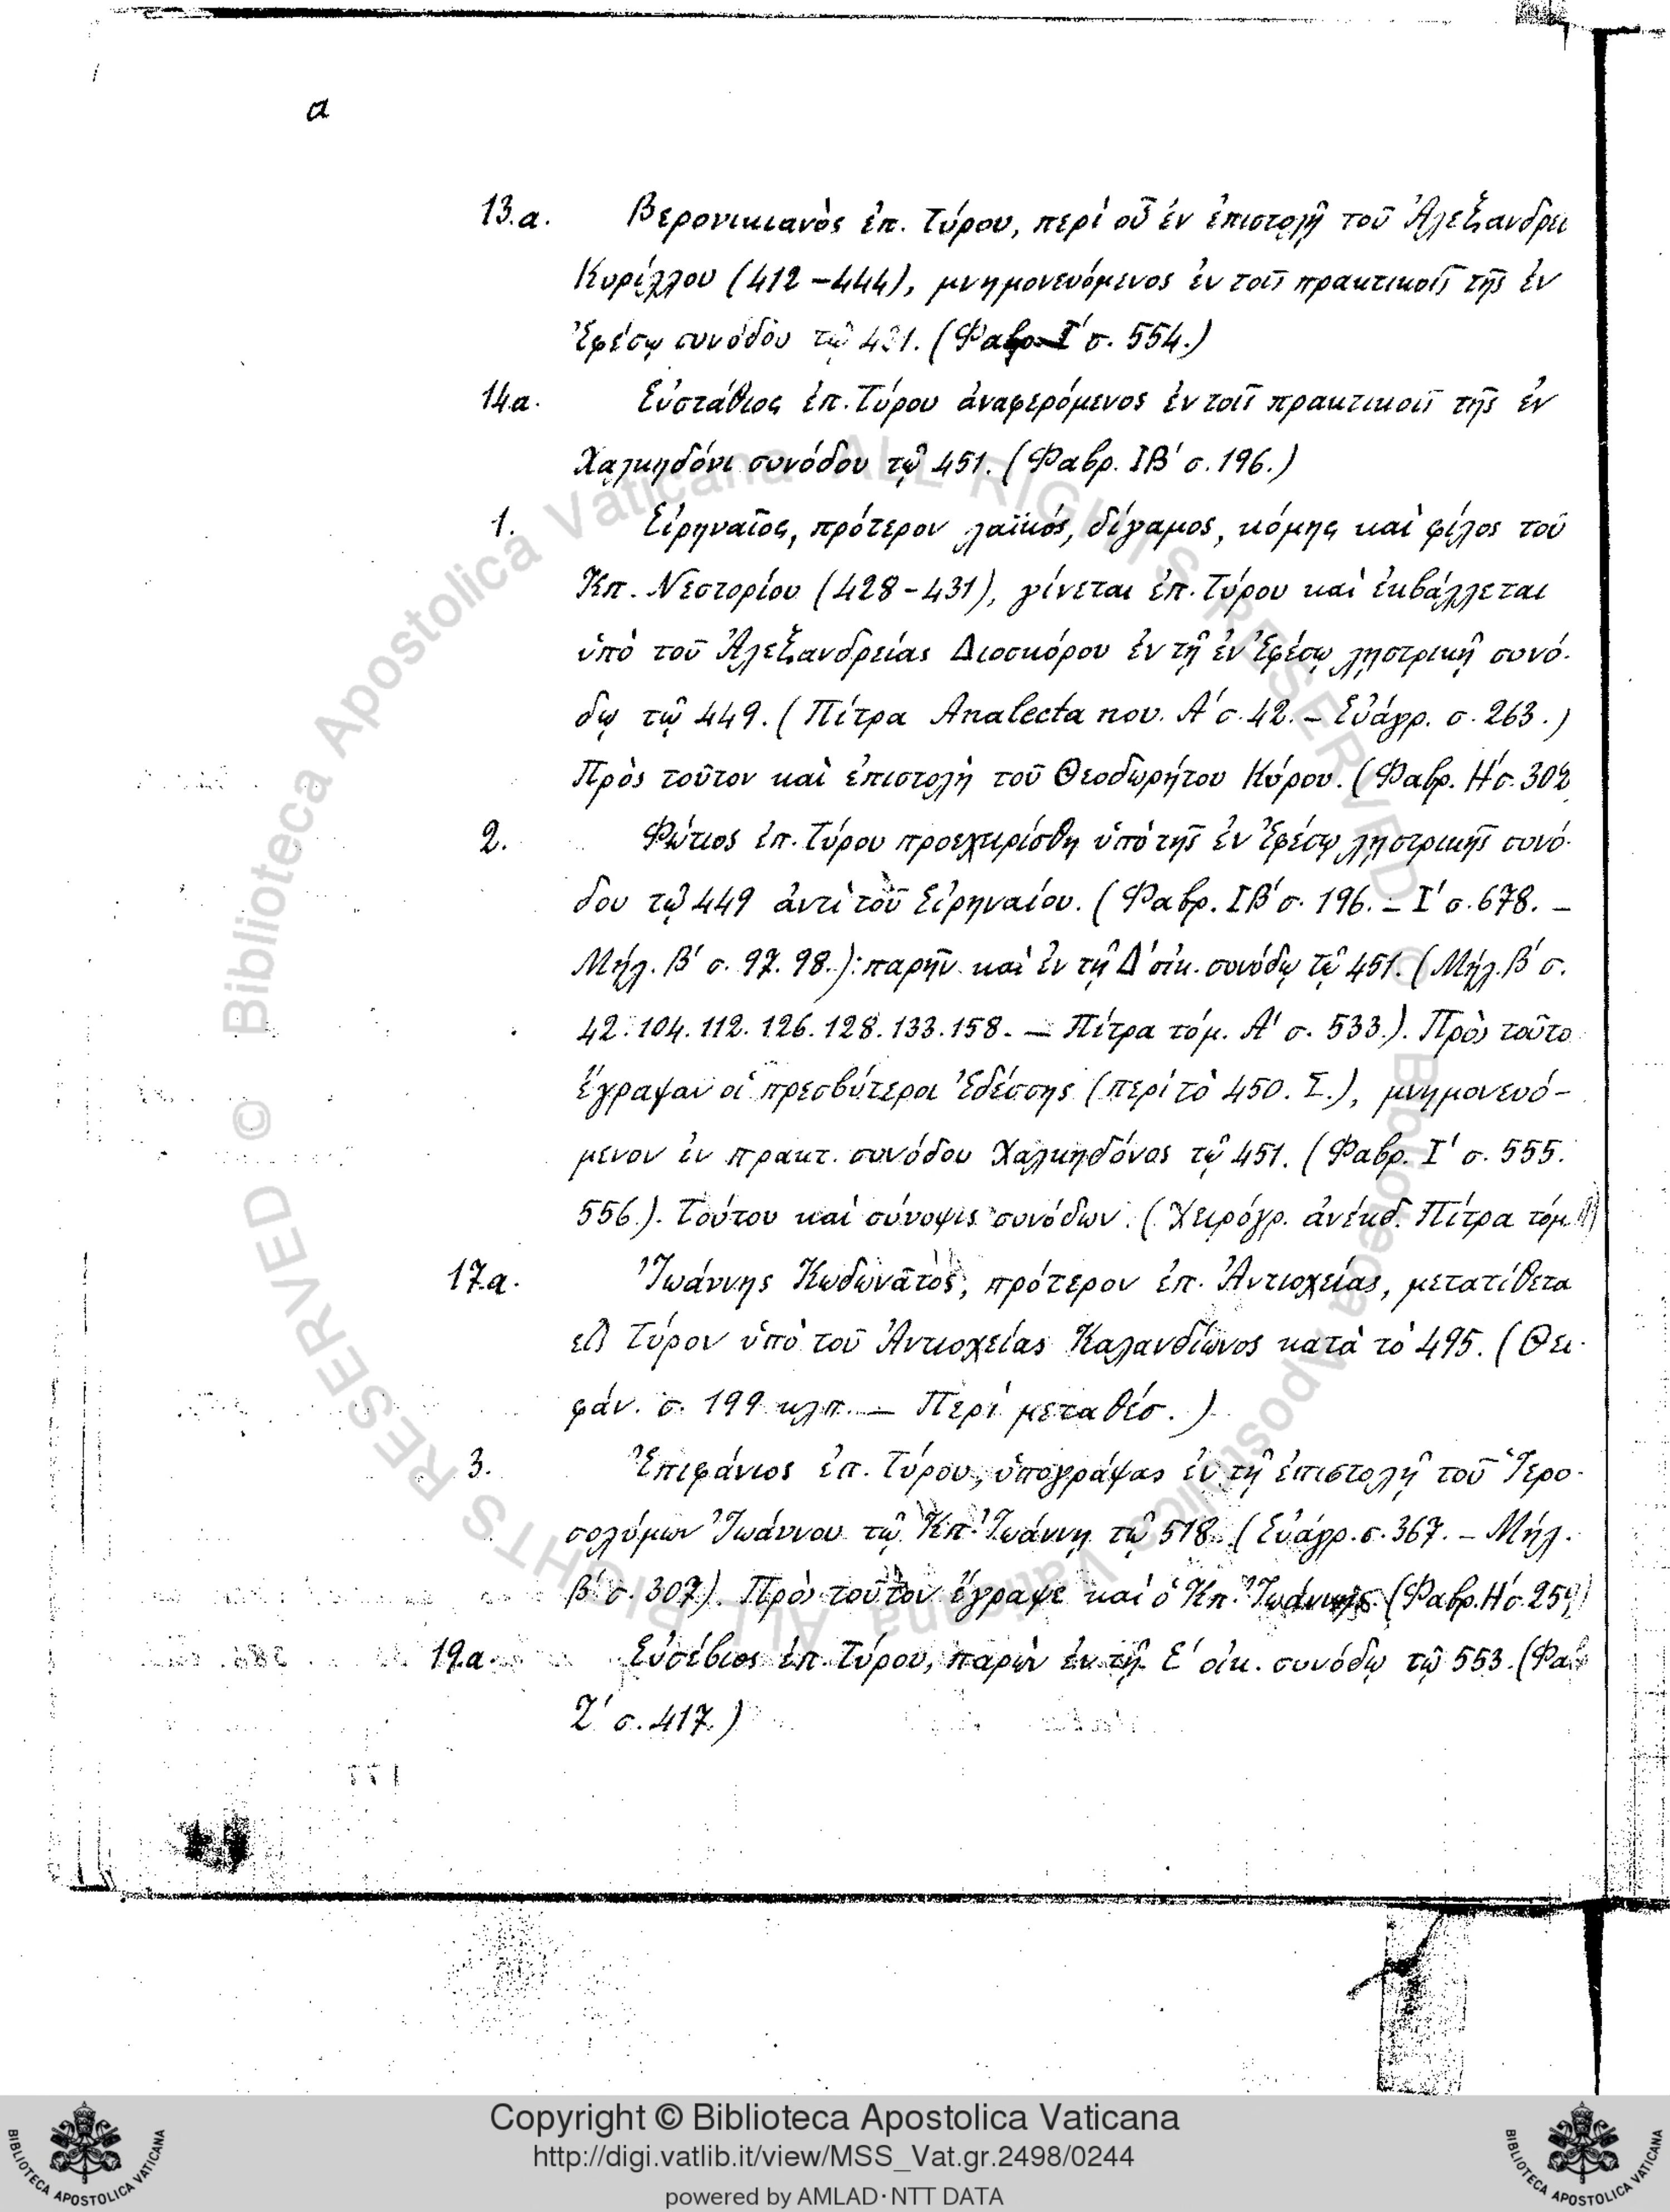 a
13.a. Βερονικιανὸς ἐπ. Τύρου, περὶ οὗ ἐν ἐπιστολῇ τοῦ Ἀλεξανδρει
Κυρίλλου (412-444), μνημονευόμενος ἐν τοῖς πρακτικοῖς τῆς ἐν
Ἐφέσῳ συνόδου τῷ 431. (Φαβρ. Ι' σ. 554.)
14.a. Εὐστάθιος ἐπ. Τύρου ἀναφερόμενος ἐν τοῖς πρακτικοῖς τῆς ἐν
Χαλκηδόνι συνόδου τῷ 451. (Φαβρ. ΙΒ' σ. 196.)
1. Εἰρηναῖος, πρότερον λαϊκός, δίγαμος, κόμης καὶ φίλος τοῦ
Κπ. Νεστορίου (428-431), γίνεται ἐπ. Τύρου καὶ ἐκβάλλεται
ὑπὸ τοῦ Ἀλεξανδρείας Διοσκόρου ἐν τῇ ἐν Ἐφέσῳ λῃστρικῇ συνό-
δῳ τῷ 449. (Πίτρα Analecta nov. Α' σ. 42. – Εὐάγρ. σ. 263.)
Πρὸς τοῦτον καὶ ἐπιστολὴ τοῦ Θεοδωρήτου Κύρου. (Φαβρ. Η' σ. 302
2. Φώτιος ἐπ. Τύρου προεχειρίσθη ὑπὸ τῆς ἐν Ἐφέσῳ λῃστρικῆς συνό-
δου τῷ 449 ἀντὶ τοῦ Εἰρηναίου. (Φαβρ. ΙΒ' σ. 196. – Ι' σ. 678. –
Μήλ. Β' σ. 97. 98.): παρῆν καὶ ἐν τῇ Δ' οἰκ. συνόδῳ τῷ 451. (Μήλ. Β' σ.
42. 104. 112. 126. 128. 133. 158. – Πίτρα τόμ. Α' σ. 533.). Πρὸς τοῦτο
ἔγραψαν οἱ πρεσβύτεροι Ἐδέσσης (περὶ τὸ 450. Σ.), μνημονευό-
μενον ἐν πρακτ. συνόδου Χαλκηδόνος τῷ 451. (Φαβρ. Ι' σ. 555.
556.). Τούτου καὶ σύνοψις συνόδων. (Χειρόγρ. ἀνέκδ. Πίτρα τόμ.
17.a. Ἰωάννης Κωδωνᾶτος, πρότερον ἐπ. Ἀντιοχείας, μετατίθετα
εἰς Τύρον ὑπὸ τοῦ Ἀντιοχείας Καλανδίωνος κατὰ τὸ 495. (Θει-
φάν. σ. 199 κλπ. – Περὶ μεταθέσ.)
3. Ἐπιφάνιος ἐπ. Τύρου, ὑπογράψας ἐν τῇ ἐπιστολῇ τοῦ Ἱερο-
σολύμων Ἰωάννου τῷ Κπ. Ἰωάννῃ τῷ 518. (Εὐάγρ. σ. 367. – Μήλ.
Β' σ. 307). Πρὸς τοῦτον ἔγραψε καὶ ὁ Κπ. Ἰωάννης. (Φαβρ. Η' σ. 259)
19.a. Εὐσέβιος ἐπ. Τύρου, παρὼν ἐν τῇ Ε' οἰκ. συνόδῳ τῷ 553. (Φαβ
Ζ' σ. 417.)
© Biblioteca Apostolica Vaticana ALL RIGHTS RESERVED
© Biblioteca Apostolica Vaticana ALL RIGHTS RESERVED
Copyright © Biblioteca Apostolica Vaticana
http://digi.vatlib.it/view/MSS_Vat.gr.2498/0244
powered by AMLAD·NTT DATA
BIBLIOTECA APOSTOLICA VATICANA
BIBLIOTECA APOSTOLICA VATICANA